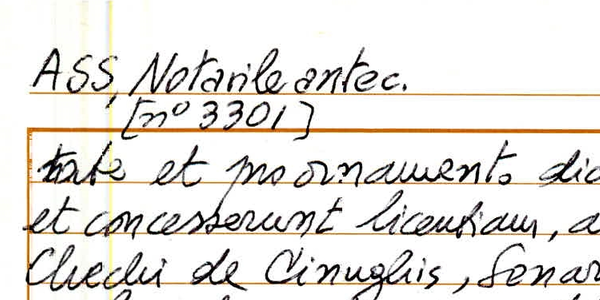 ASS, Notarile antec.
[n° 3301]
et pro ornamento
et concesserunt licentiam, a
Chechi de Cinughis, Senar